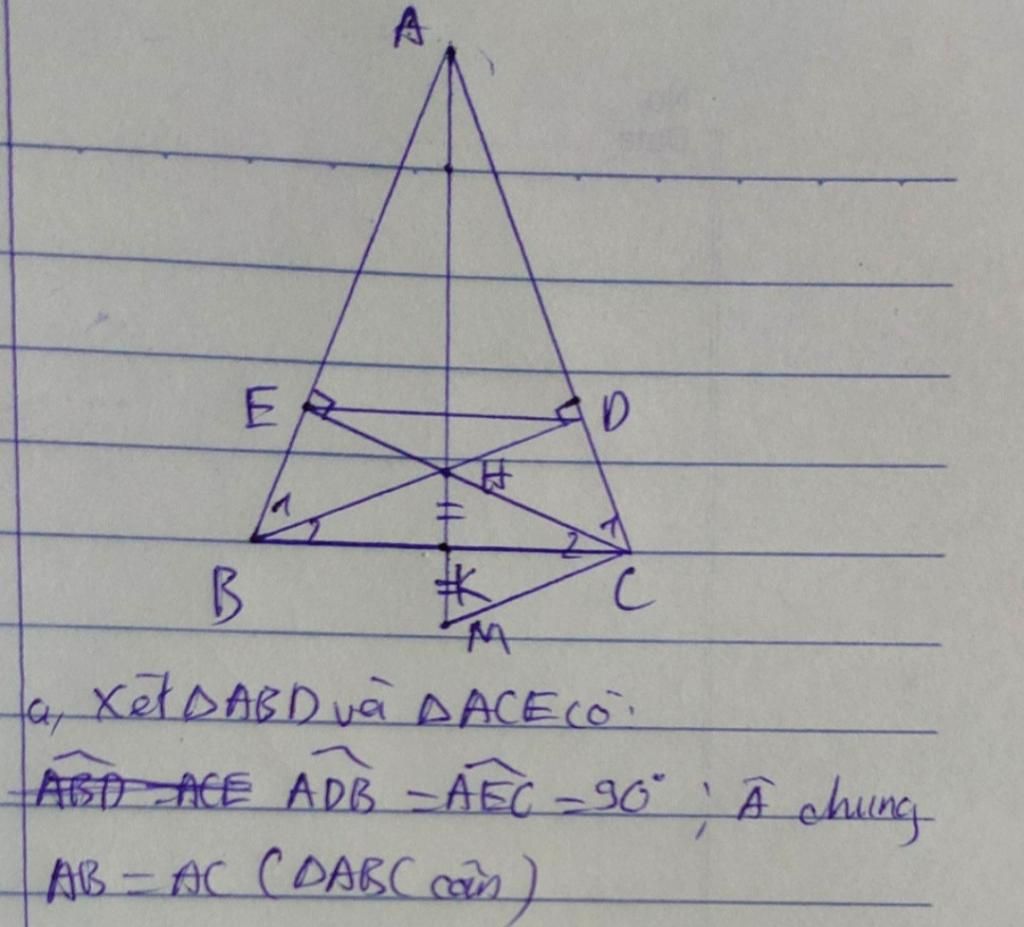 A
E
D
H
1
2
2
1
B
K
C
M
a, Xét ΔABD và ΔACE có:
ABD = ACE ADB = AEC = 90° ; Â chung
AB = AC (ΔABC cân)